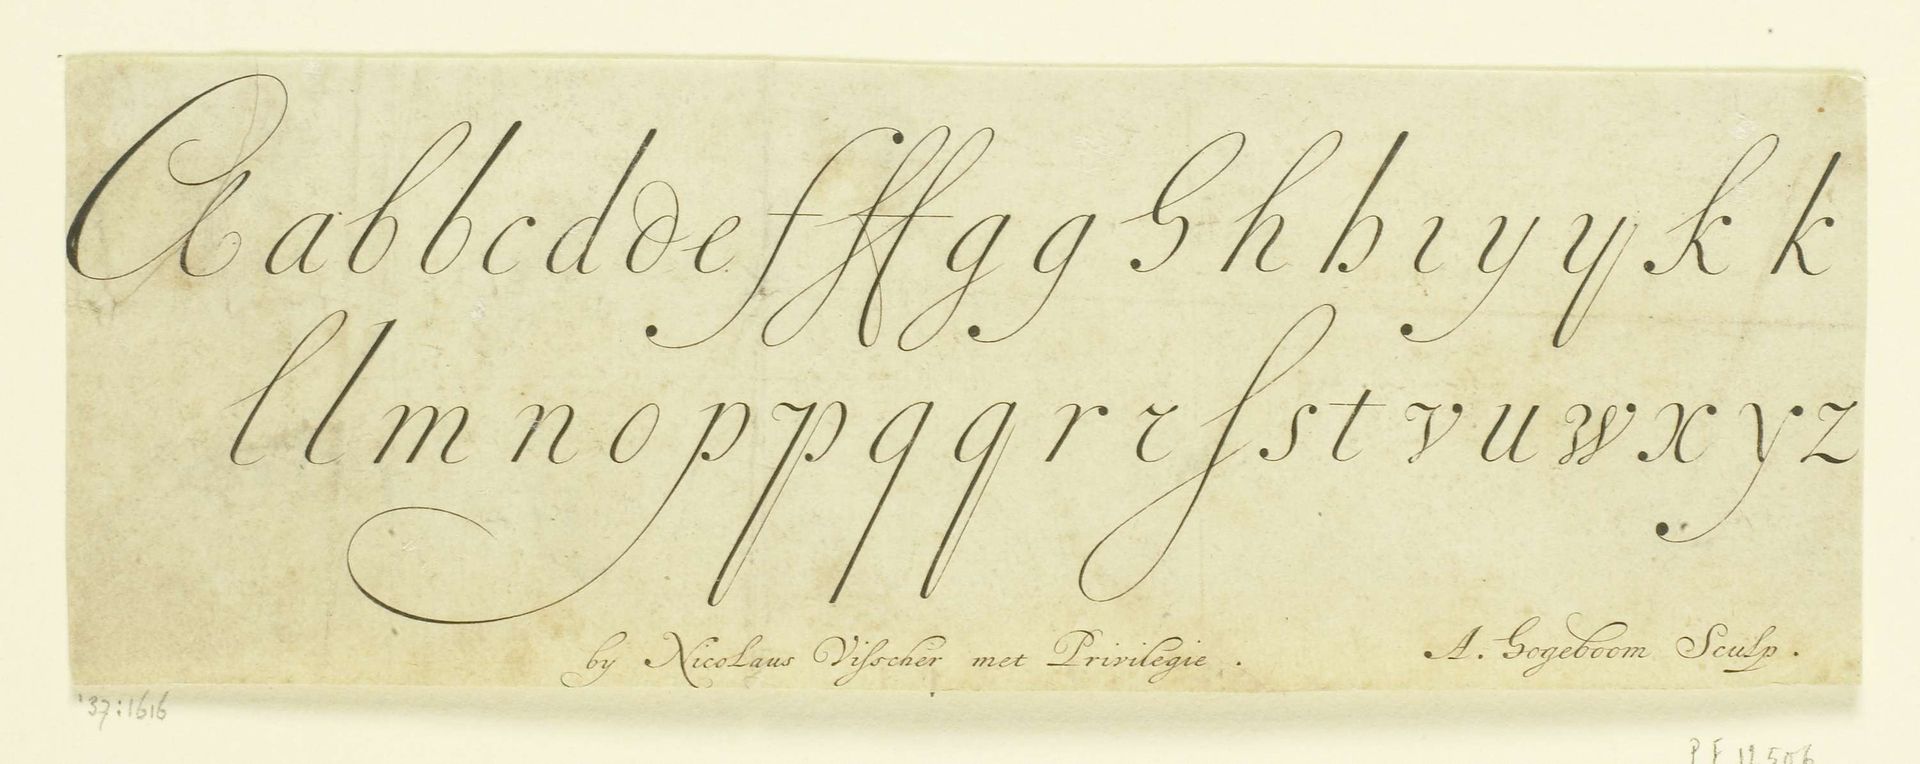 A a b b c d d e f ff g g h h h ı y y k k
l l m n o p p q q r r ſ s t v u w x y z
by Nicolaus Viſscher met Privilegie .
A. Hogeboom Sculp .
'37:1616
P F 11506